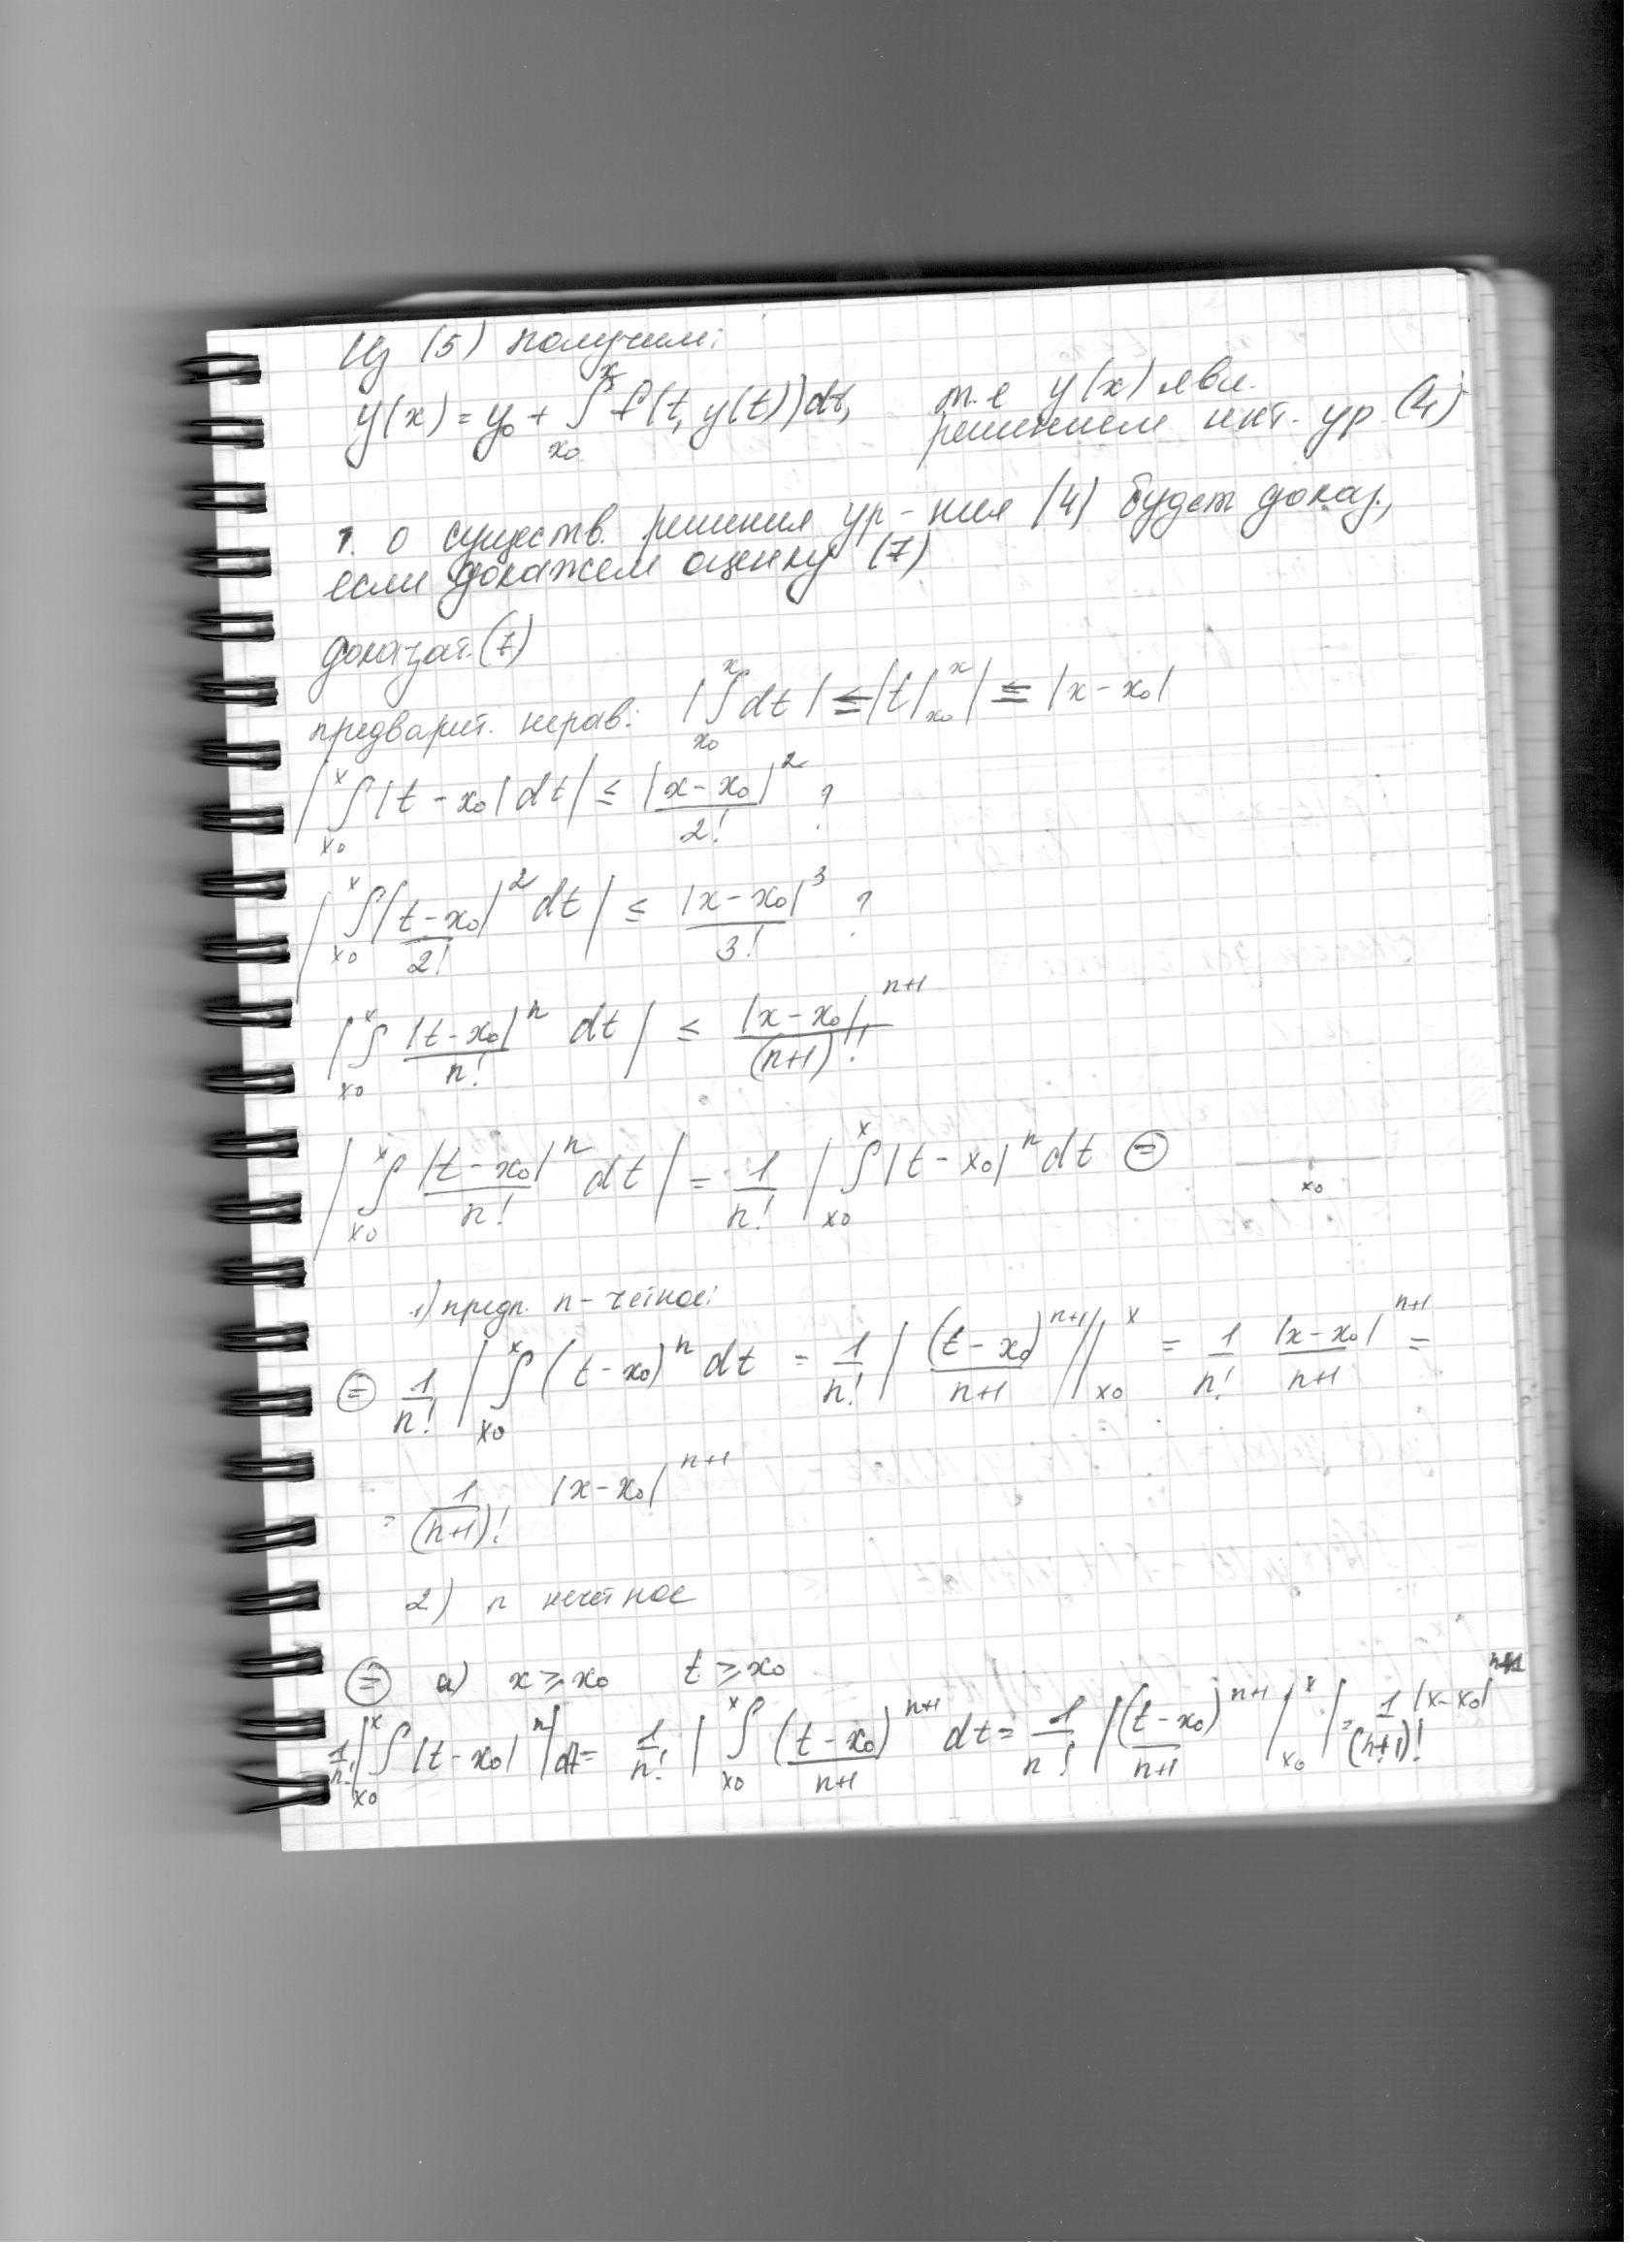 Из (5) получим:
y(x) = y₀ + ∫_{x₀}^{x} f(t, y(t))dt, т.е y(x) явл.
решением инт. ур. (4)
т. о существ. решения ур-ния (4) будет доказ.,
если докажем оценку (7)
доказат. (7)
предварит. нерав: |∫_{x₀}^{x} dt| ≤ |t|_{x₀}^{x}| ≤ |x-x₀|
|∫_{x₀}^{x} |t-x₀| dt| ≤ |x-x₀|²/2! ?
|∫_{x₀}^{x} |t-x₀|²/2! dt| ≤ |x-x₀|³/3! ?
|∫_{x₀}^{x} |t-x₀|ⁿ/n! dt| ≤ |x-x₀|ⁿ⁺¹/(n+1)!
|∫_{x₀}^{x} |t-x₀|ⁿ/n! dt| = 1/n! |∫_{x₀}^{x} |t-x₀|ⁿ dt ⊜ x₀
1) предп. n-четное:
⊜ 1/n! |∫_{x₀}^{x} (t-x₀)ⁿ dt = 1/n! |(t-x₀)ⁿ⁺¹/(n+1)||_{x₀}^{x} = 1/n! |x-x₀|ⁿ⁺¹/(n+1) =
= 1/(n+1)! |x-x₀|ⁿ⁺¹
2) n нечетное
⊜ а) x ≥ x₀ t ≥ x₀
1/n! |∫_{x₀}^{x} |t-x₀|ⁿ| dt = 1/n! |∫_{x₀}^{x} (t-x₀)ⁿ⁺¹/(n+1) dt = 1/n! |(t-x₀)ⁿ⁺¹/(n+1) |_{x₀}^{x}| = 1/(n+1)! |x-x₀|ⁿ⁺¹